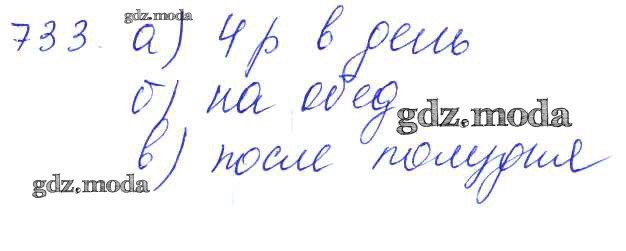 gdz.moda
733. а) 4 р в день
б) на обед
gdz.moda
в) после полудня
gdz.moda